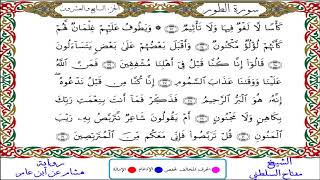 الجزء السابع والعشرون
سورة الطور
كَأْسًا لَّا لَغْوٌ فِيهَا وَلَا تَأْثِيمٌ ۞ وَيَطُوفُ عَلَيْهِمْ غِلْمَانٌ لَّهُمْ
كَأَنَّهُمْ لُؤْلُؤٌ مَّكْنُونٌ ۞ وَأَقْبَلَ بَعْضُهُمْ عَلَىٰ بَعْضٍ يَتَسَاءَلُونَ
۞ قَالُوا إِنَّا كُنَّا قَبْلُ فِي أَهْلِنَا مُشْفِقِينَ ۞ فَمَنَّ اللَّهُ
عَلَيْنَا وَوَقَانَا عَذَابَ السَّمُومِ ۞ إِنَّا كُنَّا مِن قَبْلُ نَدْعُوهُ
إِنَّهُ هُوَ الْبَرُّ الرَّحِيمُ ۞ فَذَكِّرْ فَمَا أَنتَ بِنِعْمَتِ رَبِّكَ
بِكَاهِنٍ وَلَا مَجْنُونٍ ۞ أَمْ يَقُولُونَ شَاعِرٌ نَّتَرَبَّصُ بِهِ رَيْبَ
الْمَنُونِ ۞ قُلْ تَرَبَّصُوا فَإِنِّي مَعَكُم مِّنَ الْمُتَرَبِّصِينَ
الشيخ
مفتاح السلطني
رواية
هشام عن ابن عامر
الحرف المخالف لحفص
الإدغام
الإمالة